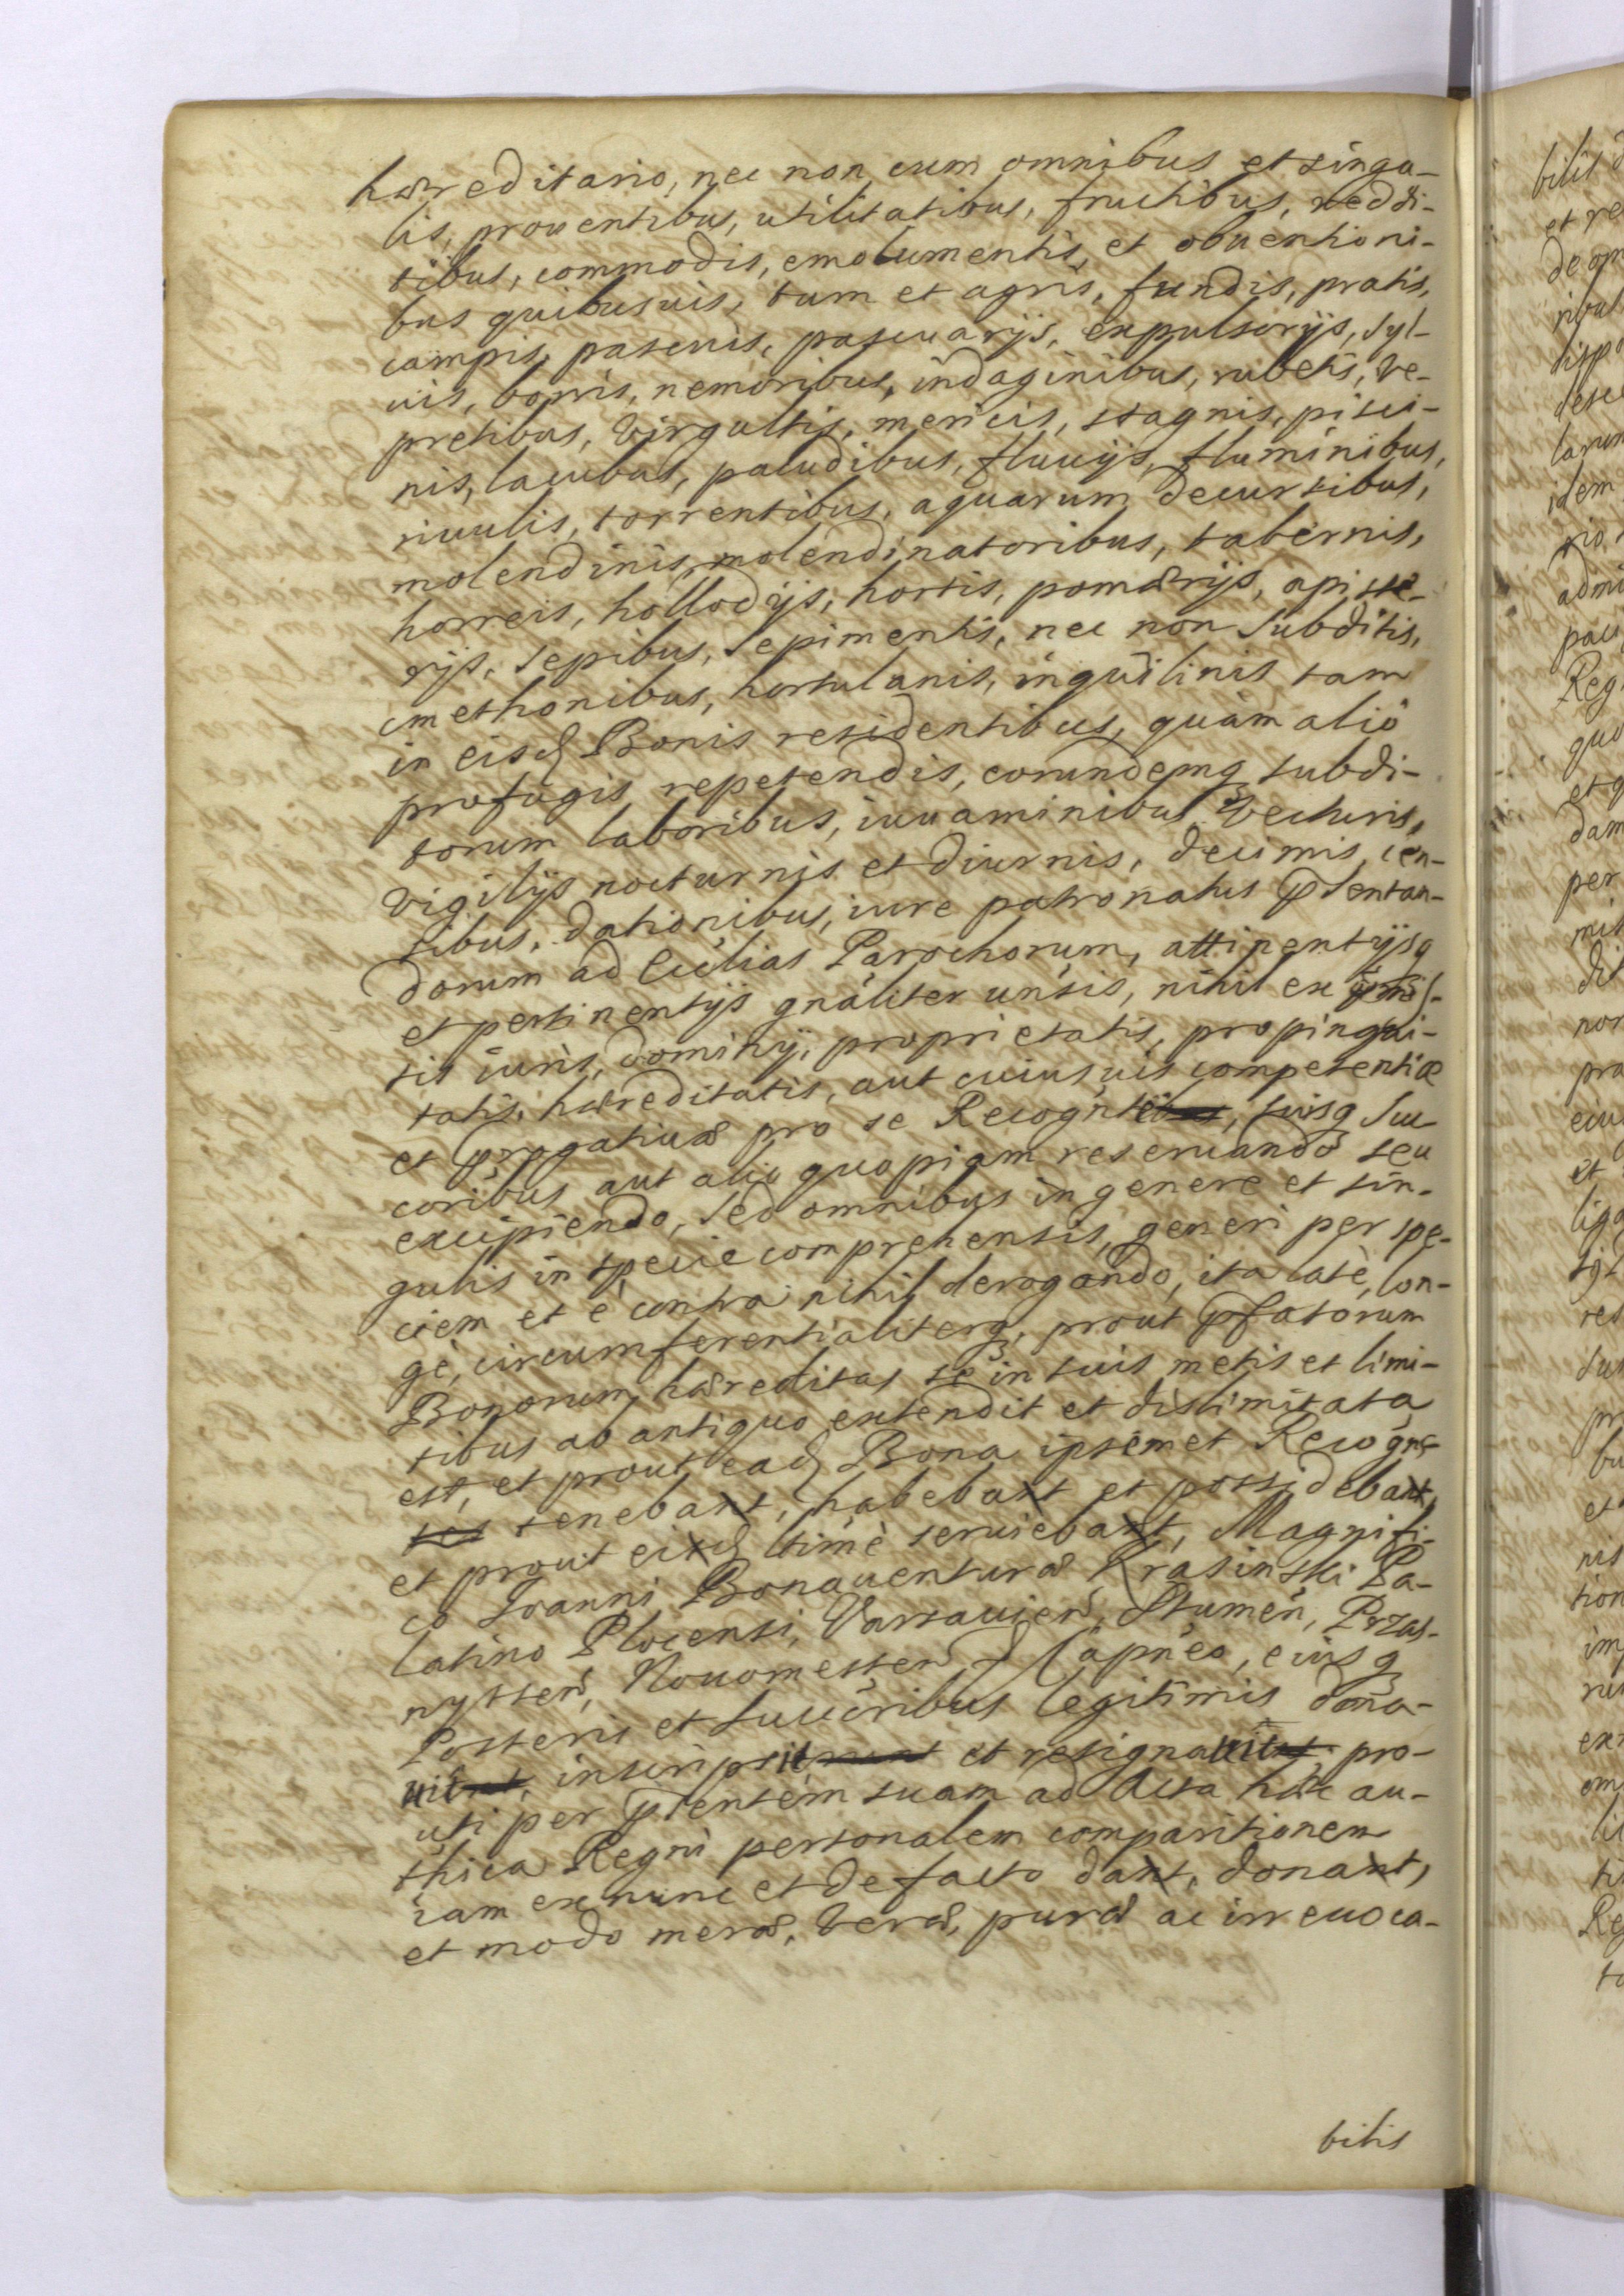 hæreditario, nec non cum omnibus et singu-
lis, prouentibus, utilitatibus, fructibus, reddi-
tibus, commodis, emolumentis, et obuentioni-
bus quibusuis, tum et agris, fundis, pratis,
campis, pascuis, pascuarijs, expulsorijs, Syl-
uis, borris, nemoribus, indaginibus, rubetis, Ve-
pretibus, Virgultis, mericis, stagnis, pisci-
nis, lacubus, paludibus, fluuijs, fluminibus,
riuulis, torrentibus, aquarum decursibus,
molendinis, molendinatoribus, tabernis,
horreis, hollodijs, hortis, pomærijs, apiste-
rijs, Sepibus, Sepimentis, nec non Subditis,
cmethonibus, hortulanis, inquilinis tam
in eisd Bonis residentibus, quàm aliò
profugis repetendis, eorundemq subdi-
torum laboribus, iuuaminibus Vecturis,
Vigilijs nocturnis et diurnis, decimis, cen-
sibus, dationibus, iure patronatus pñtentan-
dorum ad Ecclias Parochorum, attinentijsq
et pertinentijs gnâliter unsis, nihil ex
tis iuris, dominij, proprietatis, propinqui-
tatis, hæreditatis, aut cuiusuis competentiæ
et prærogatiuæ pro se Recogn, suisq Suc
coribus aut alio quopiam reseruando seu
excipiendo, Sed omnibus in genere et sin-
gulis in specie comprehensis, generi per spe-
ciem et è contra nihil derogando, ita latè, lon-
gè, circumferentialiterq, prout pfatorum
Bonorum hæreditas se in suis metis et limi-
tibus ab antiquo extendit et dislimitata
est, et prout ead Bona ipsemet Recogn
tenebant, habebant et possidebant,
et prout eisd ltimè seruiebant, Magnifi-
co Ioanni Bonauenturæ Krasinski Pa-
latino Plocensi, Varsauien, Stumen, Przas-
nyssen, Nouomesten Capneo, eiusq
Posteris et succoribus legitimis dona-
uit, inscripsit et resignauit, pro-
uti per pñtentem suam ad Acta hæc au-
thica Regni personalem comparitionem
iam ex nunc et de facto dant, donant,
et modo meræ, Veræ, puræ ac irreuoca-
bilis